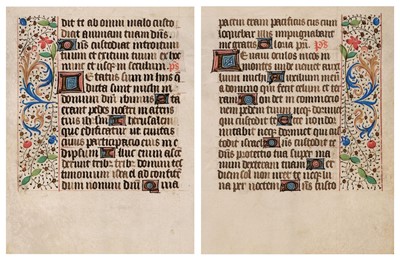 die te ab omni malo custo
diat animam tuam dñs.
Dñs custodiat introitum
tuum et exitum tuum ex hoc
nunc et usq in seculum. ps
Letatus sum in hiis q
dicta sunt michi in
domum dñi ibimus
erant pedes nostri in atriis
tuis iherusalem
que edificatur ut ciuitas
cuius participacio eius in id
ipsum Illuc enim ascen
derunt tribus tribus domini tes
timonium isrl ad confiten
dum nomini dñi Quia
pacem eram pacificus cum
loquebar illis impugnabant
me gratis Gloria pri. ps
Leuaui oculos meos in
montes unde ueniet auxi
lium michi Auxilium
a dño qui fecit celum
Non det in commocio
nem pedem tuum neqz dormitet
qui custodit te Ecce non dor
mitabit neqz dormiet qui cus
todit israel Dñs custodit te
dñs protectio tua super ma
num dexteram tuam Per
diem sol non uret te neqz lu
na per noctem Dñs custo